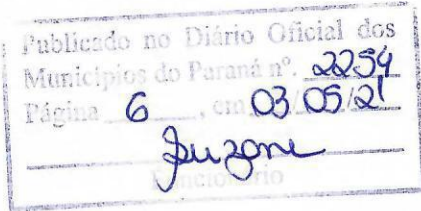 Publicado no Diário Oficial dos
Municípios do Paraná nº. 2254
Página 6, em 03/05/21
Suzane
Funcionário